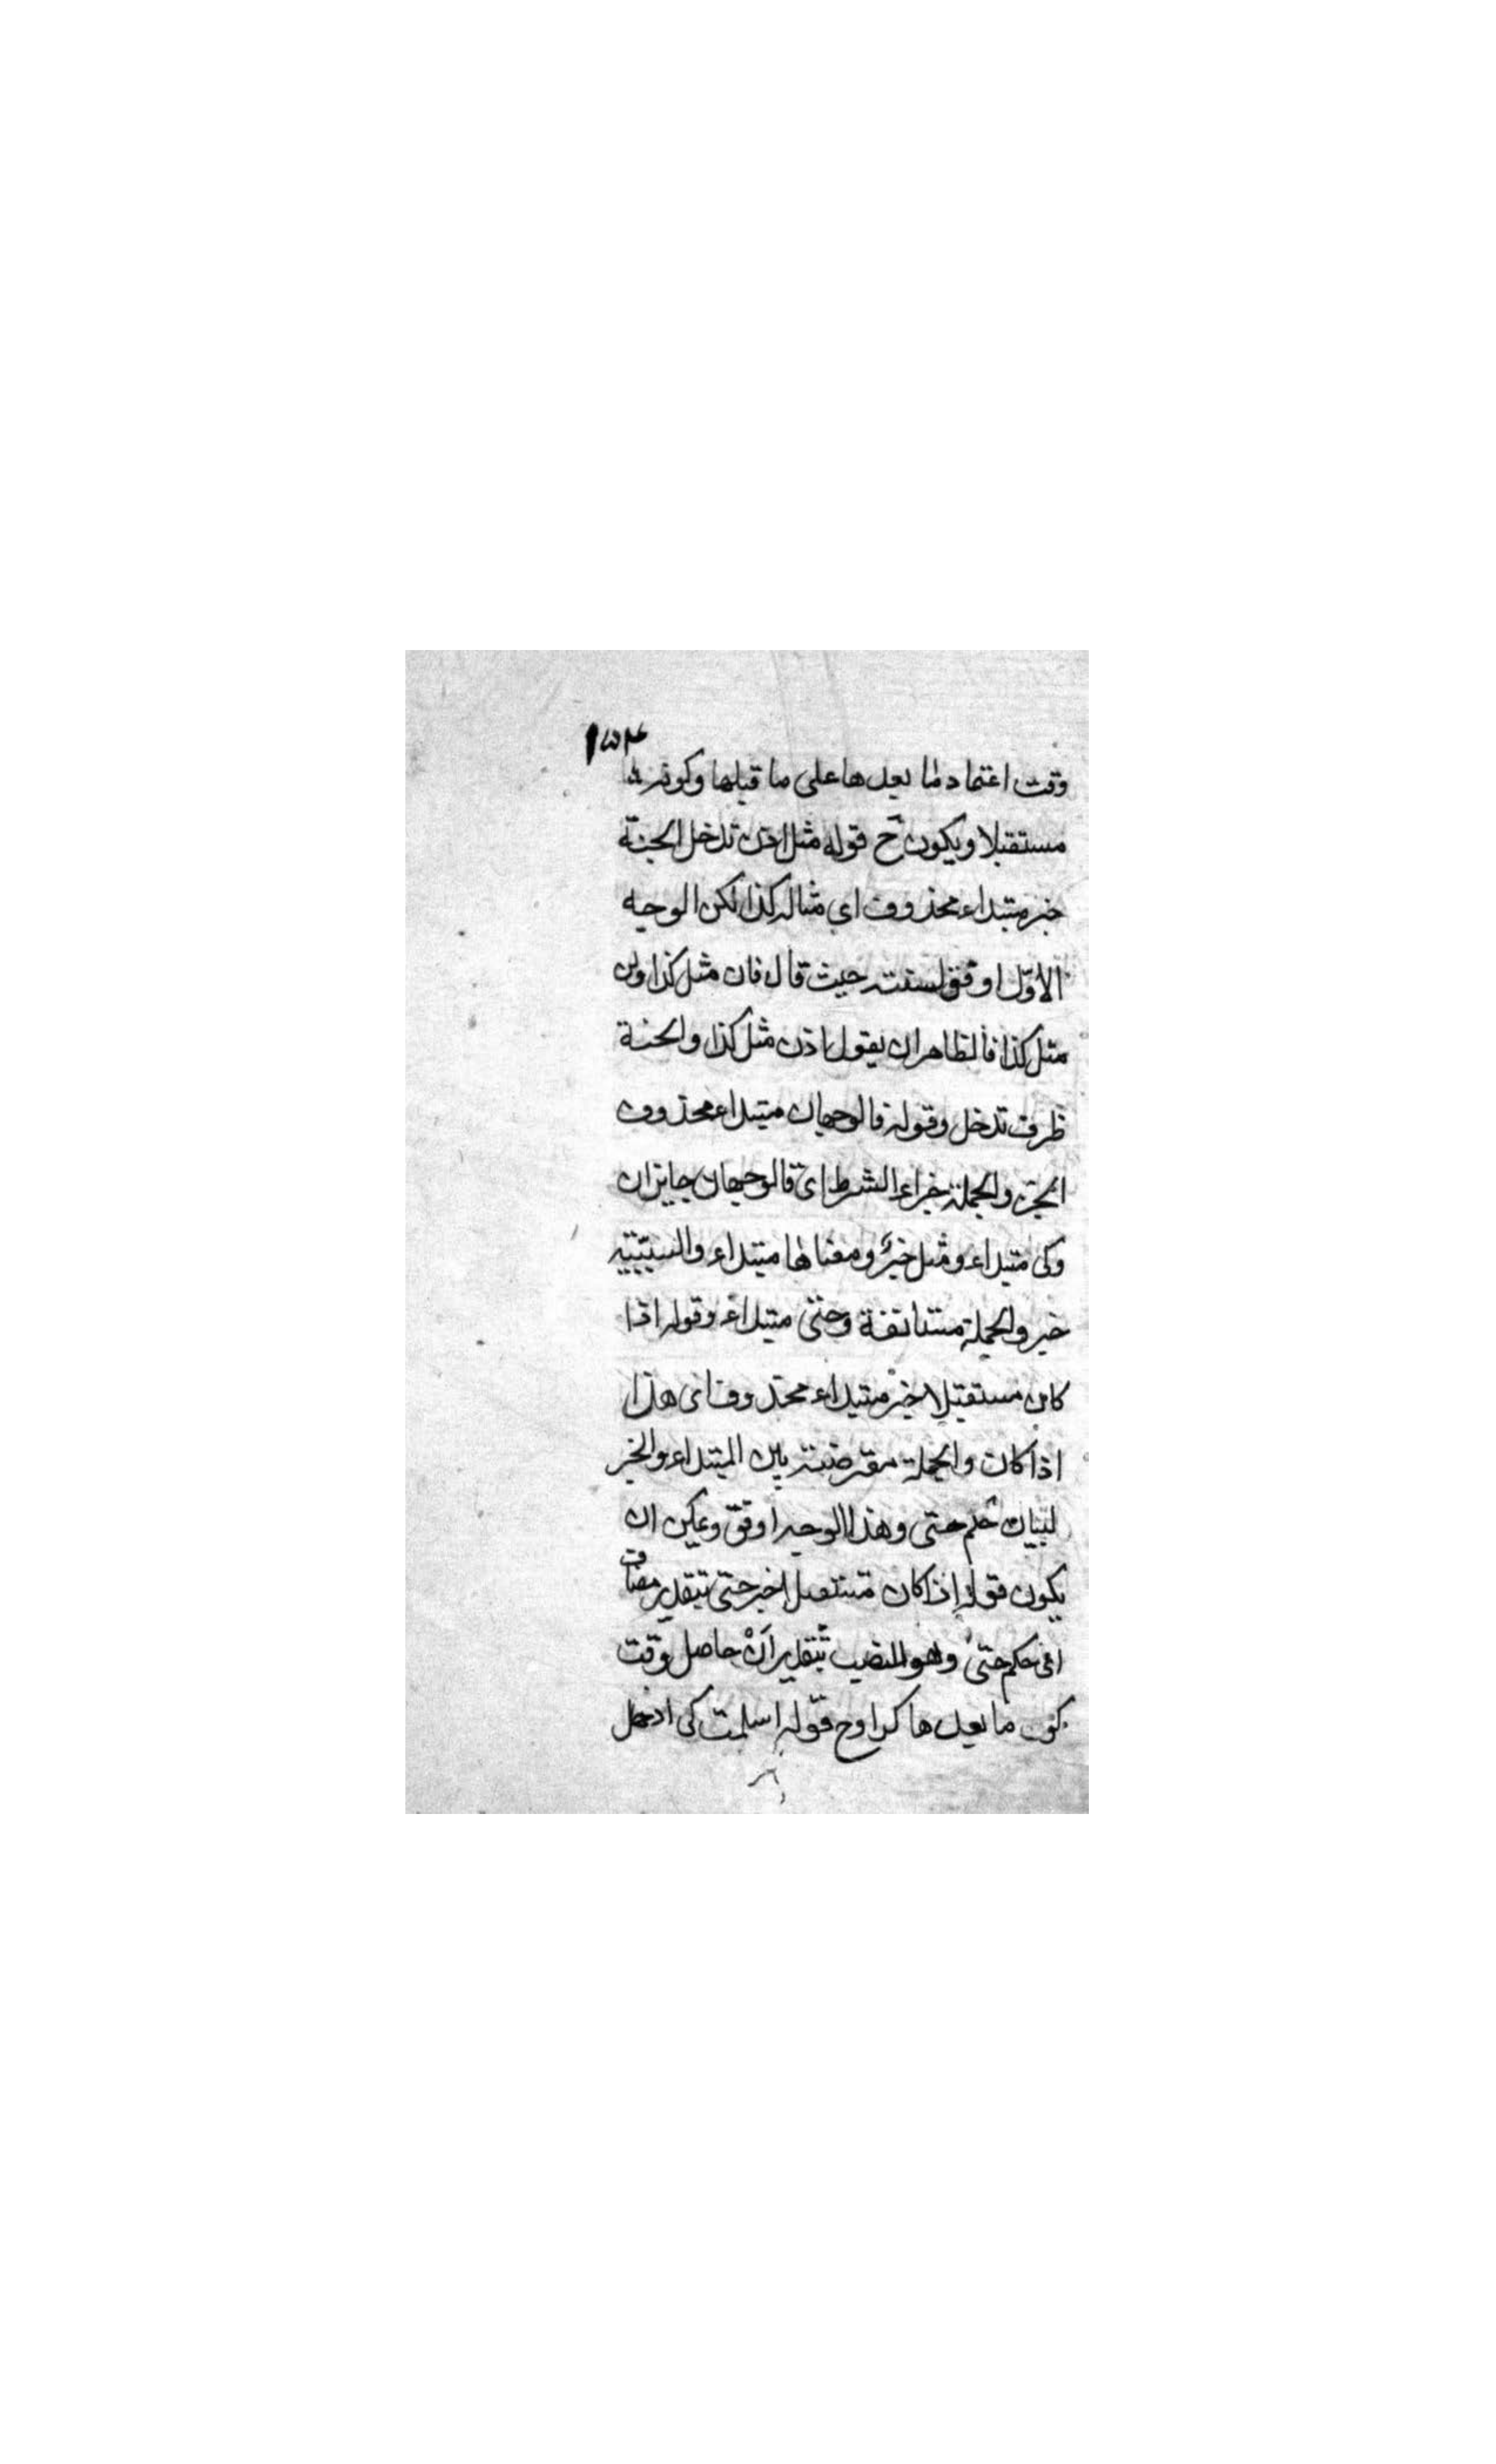 وقت اعتماد ما بعدها على ما قبلها وكونه
مستقبلا ويكون ح قوله مثل اذن تدخل الجنة
خبر مبتداء محذوف اي مثاله كذا لكن الوجه
الاوّل اوفق لسنته حيث قال فان مثل كذا ولن
مثل كذا فالظاهر ان يقول اذن مثل كذا والجنة
ظرف تدخل وقوله فالوجهان مبتداء محذوف
الخبر والجملة جزاء الشرط اي فالوجهان جايزان
وكى مبتداء ومثل خبره ومعناها مبتداء والسببيّة
خبر والجملة مستانفة وحتى مبتداء وقوله اذا
كان مستقبلا خبر مبتداء محذوف اى هذا
اذا كان والجملة معترضة بين المبتداء والخبر
لبيان حكم حتى وهذا الوجه اوفق ويمكن ان
يكون قوله إذا كان مستقبلا خبر حتى بتقدير مضاف
اى حكم حتى وهو النصب بتقدير أنْ حاصل وقت
كون ما بعدها كذا وح قوله اسلمت كى ادخل